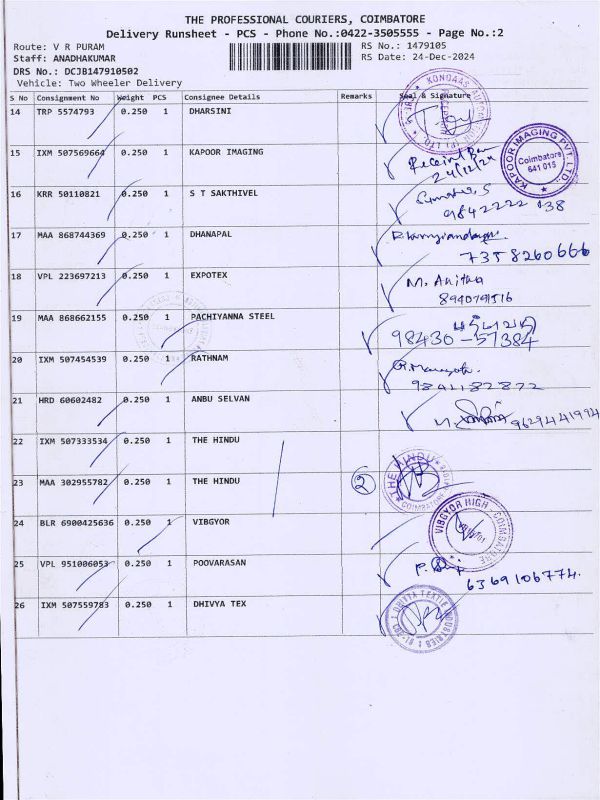 THE PROFESSIONAL COURIERS, COIMBATORE
Delivery Runsheet - PCS - Phone No.:0422-3505555 - Page No.:2
Route: V R PURAM
RS No.: 1479105
Staff: ANADHAKUMAR
RS Date: 24-Dec-2024
DRS No.: DCJB147910502
Vehicle: Two Wheeler Delivery
S No Consignment No Weight PCS Consignee Details Remarks Seal & Signature
14 TRP 5574793 0.250 1 DHARSINI
15 IXM 507569664 0.250 1 KAPOOR IMAGING
24/12/24
KAPOOR IMAGING PVT. LTD.
Coimbatore
641 015
16 KRR 50110821 0.250 1 S T SAKTHIVEL
17 MAA 868744369 0.250 1 DHANAPAL
7358260666
18 VPL 223697213 0.250 1 EXPOTEX
M. Anitha
8940791516
19 MAA 868662155 0.250 1 PACHIYANNA STEEL
98430-57384
20 IXM 507454539 0.250 1 RATHNAM
9841182872
21 HRD 60602482 0.250 1 ANBU SELVAN
9629441994
22 IXM 507333534 0.250 1 THE HINDU
23 MAA 302955782 0.250 1 THE HINDU
2
THE HINDU
COIMBATORE
24 BLR 6900425636 0.250 1 VIBGYOR
VIBGYOR HIGH - COIMBATORE
25 VPL 951006053 0.250 1 POOVARASAN
6369106774.
26 IXM 507559783 0.250 1 DHIVYA TEX